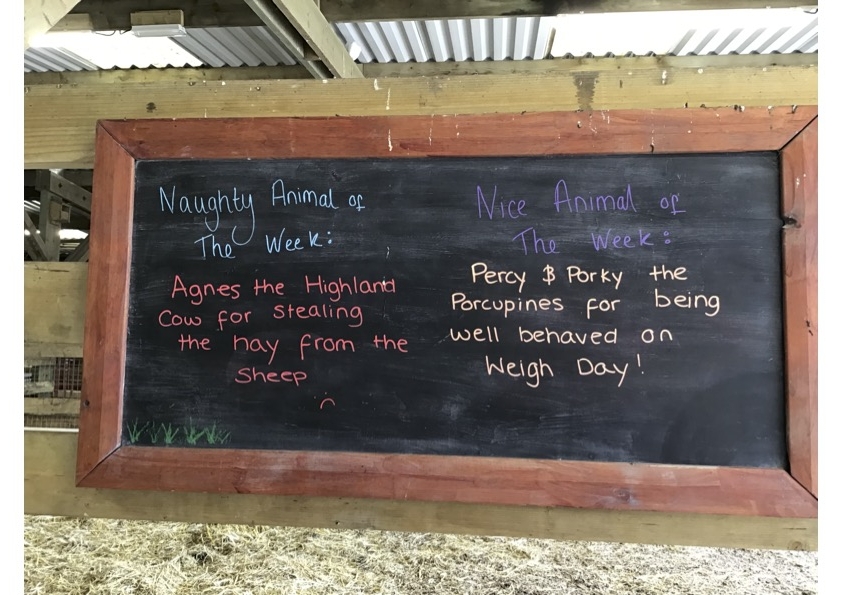 Naughty Animal of
The Week:
Agnes the Highland
Cow for stealing
the hay from the
sheep
Nice Animal of
The Week:
Percy & Porky the
Porcupines for being
well behaved on
Weigh Day!